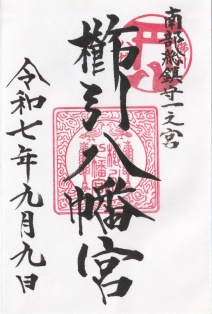 南部総鎮守一之宮
櫛引八幡宮
令和七年九月九日